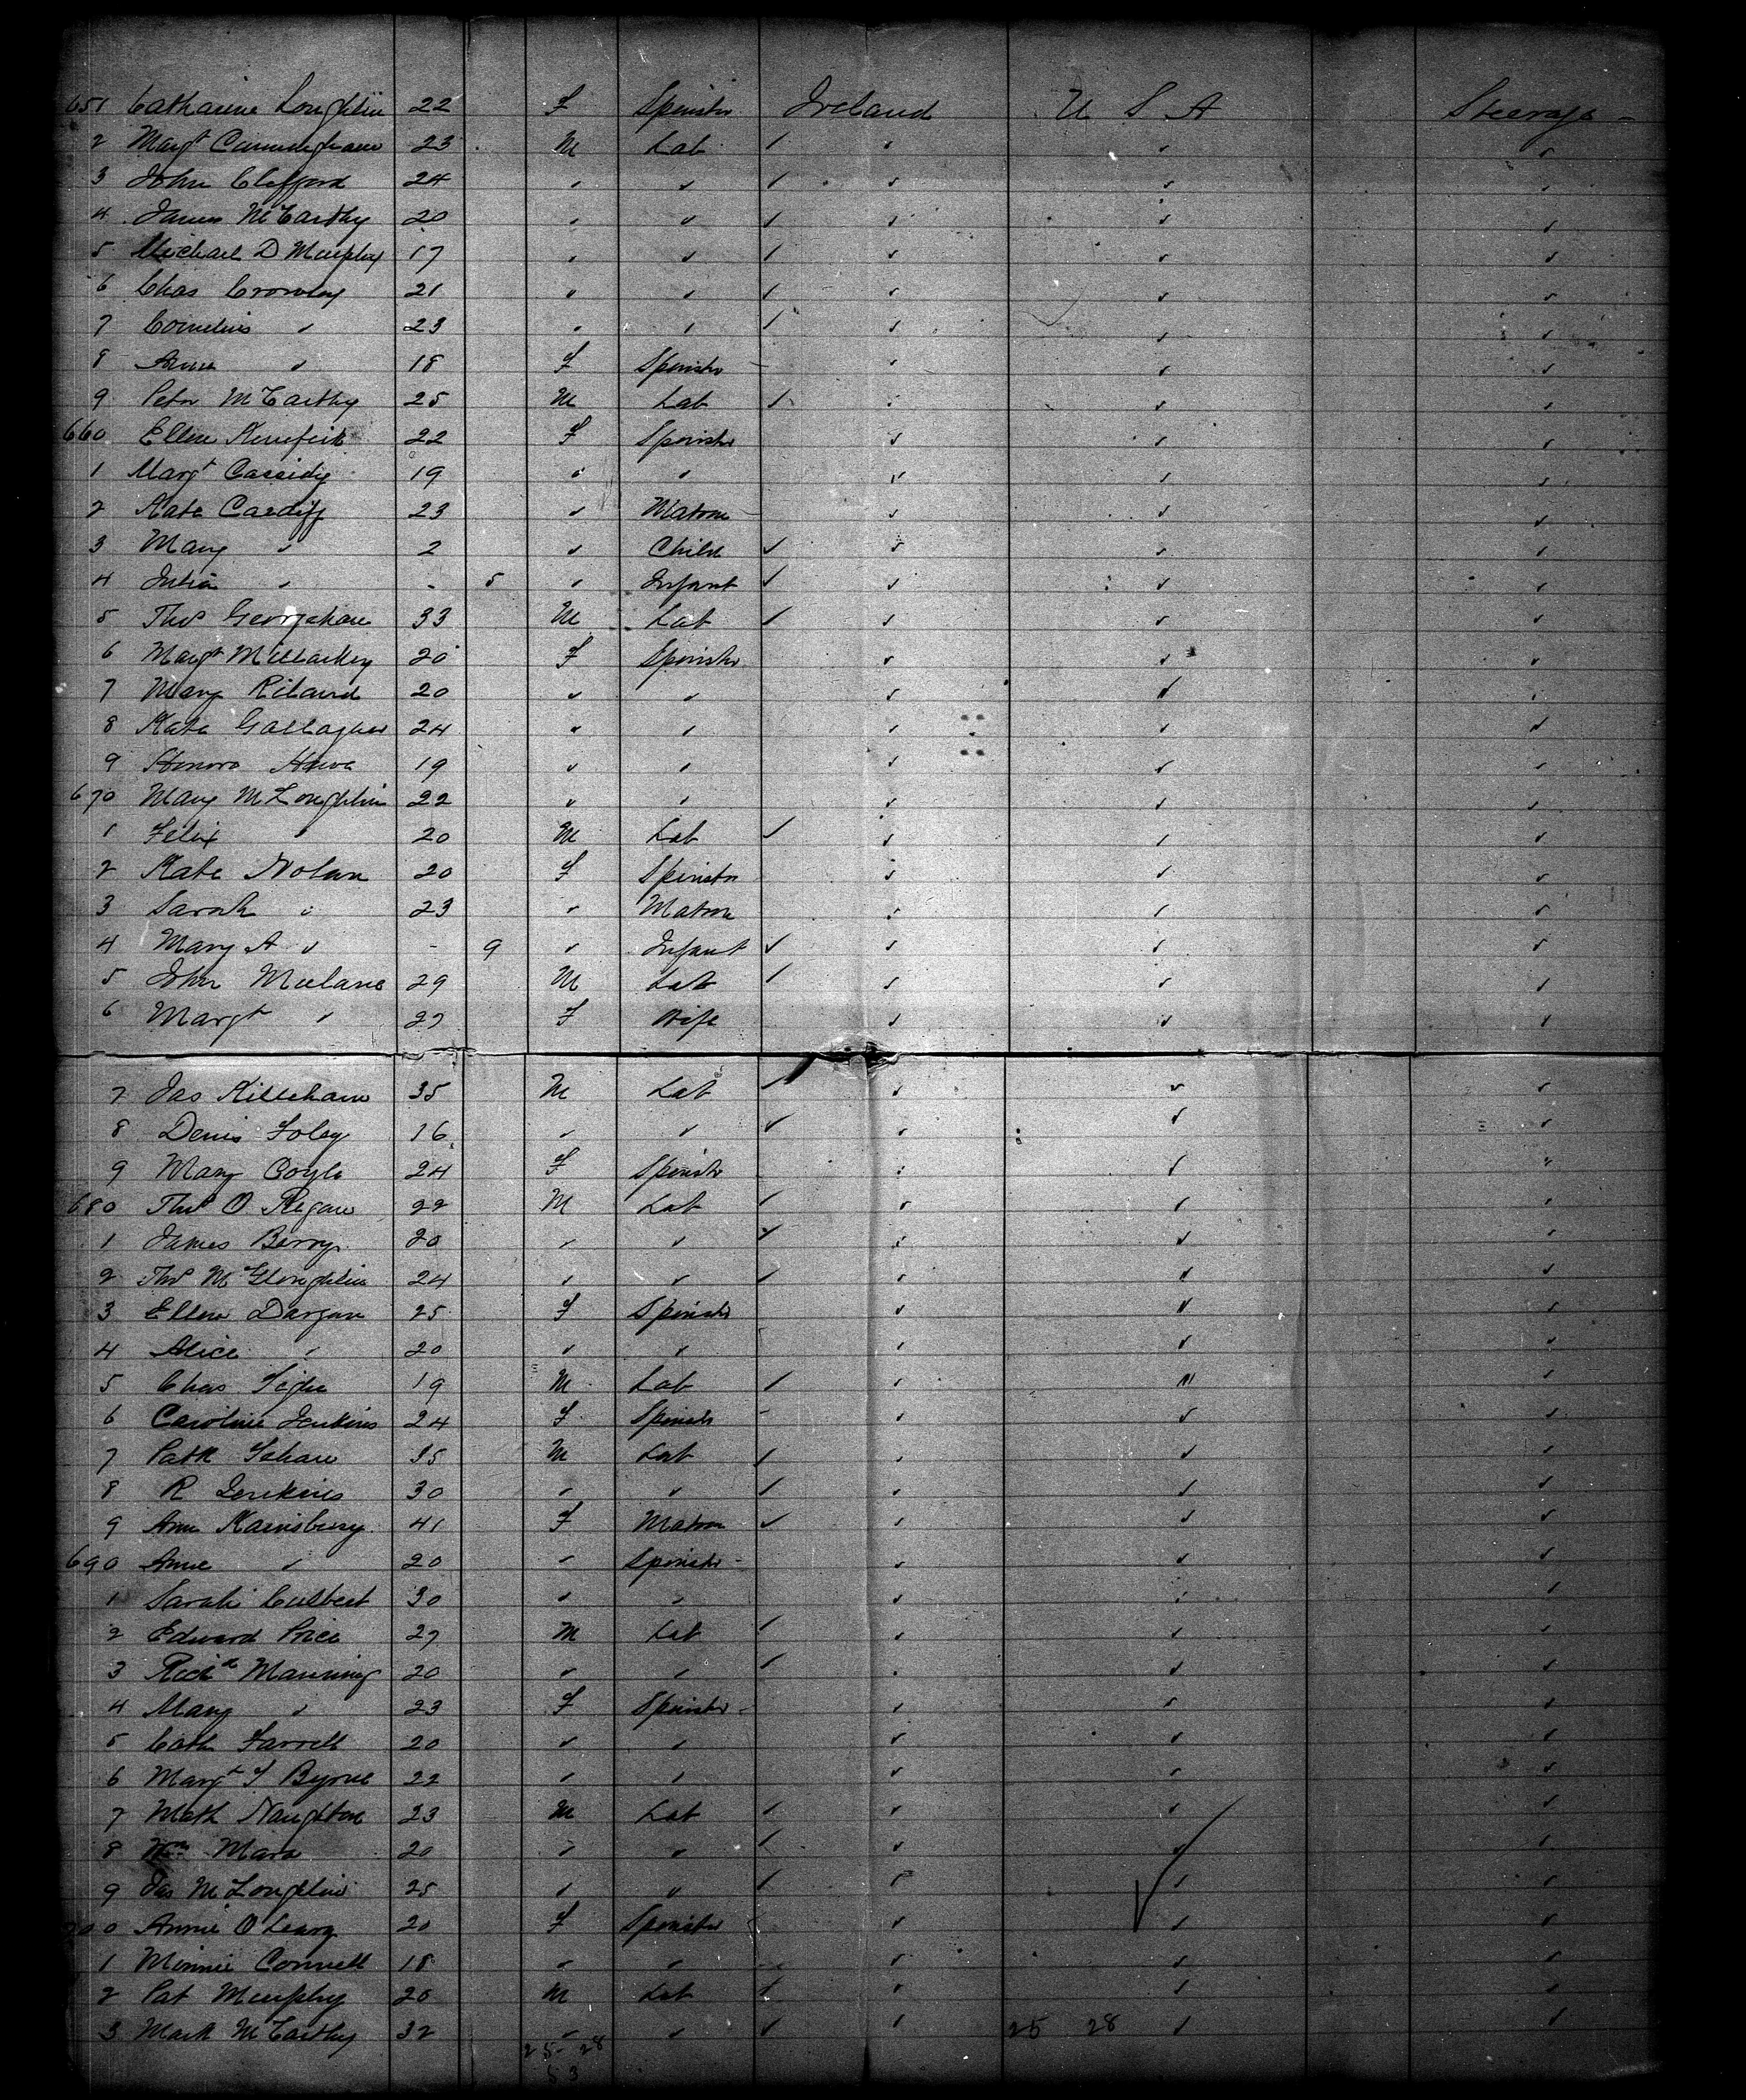 651 Catharine Loughlin 22 F Spinster Ireland U S A Steerage
2 Margt Cunningham 23 M Lab
3 John Clifford 24 " "
4 James McCarthy 20 " "
5 Michael D Murphy 17 " "
6 Chas Crowley 21 " "
7 Cornelius " 23 " "
8 Anne " 18 F Spinster
9 Peter McCarthy 25 M Lab
660 Ellen Kenefick 22 F Spinster
1 Margt Cassidy 19 " "
2 Kate Cardiff 23 " Matron
3 Mary " 2 " Child
4 Julia " - 5 " Infant
5 Thos Geoghan 33 M Lab
6 Margt Mullarkey 20 F Spinster
7 Mary 20 " "
8 Kate Gallagher 24 " "
9 Honora 19 " "
670 Mary McLoughlin 22 " "
1 Felix " 20 M Lab
2 Kate Nolan 20 F Spinster
3 Sarah " 23 " Matron
4 Mary A " - 9 " Infant
5 John 29 M Lab
6 Margt " 27 F Wife
7 Jas Killehan 35 M Lab
8 Denis Foley 16 " "
9 Mary Coyle 24 F Spinster
680 Thos O Regan 22 M Lab
1 James Berry 20 " "
2 Thos McGloughlin 24 " "
3 Ellen Dargan 25 F Spinster
4 Alice " 20 " "
5 Chas Tighe 19 M Lab
6 Caroline Jenkins 24 F Spinster
7 Patk 35 M Lab
8 R Jenkins 30 " "
9 Ann Kainsberry 41 F Matron
690 Anne " 20 " Spinster
1 Sarah Culbert 30 " "
2 Edward Price 27 M Lab
3 Richd Manning 20 " "
4 Mary " 23 F Spinster
5 Cath Farrell 20 " "
6 Margt T Byrne 22 " "
7 Math Naughton 23 M Lab
8 Wm Mara 20 " "
9 Jas McLoughlin 25 " "
700 Annie O Leary 20 F Spinster
1 Minnie Connell 18 " "
2 Pat Murphy 20 M Lab
3 Mark McCarthy 32 " " 25 28
25 - 28
53